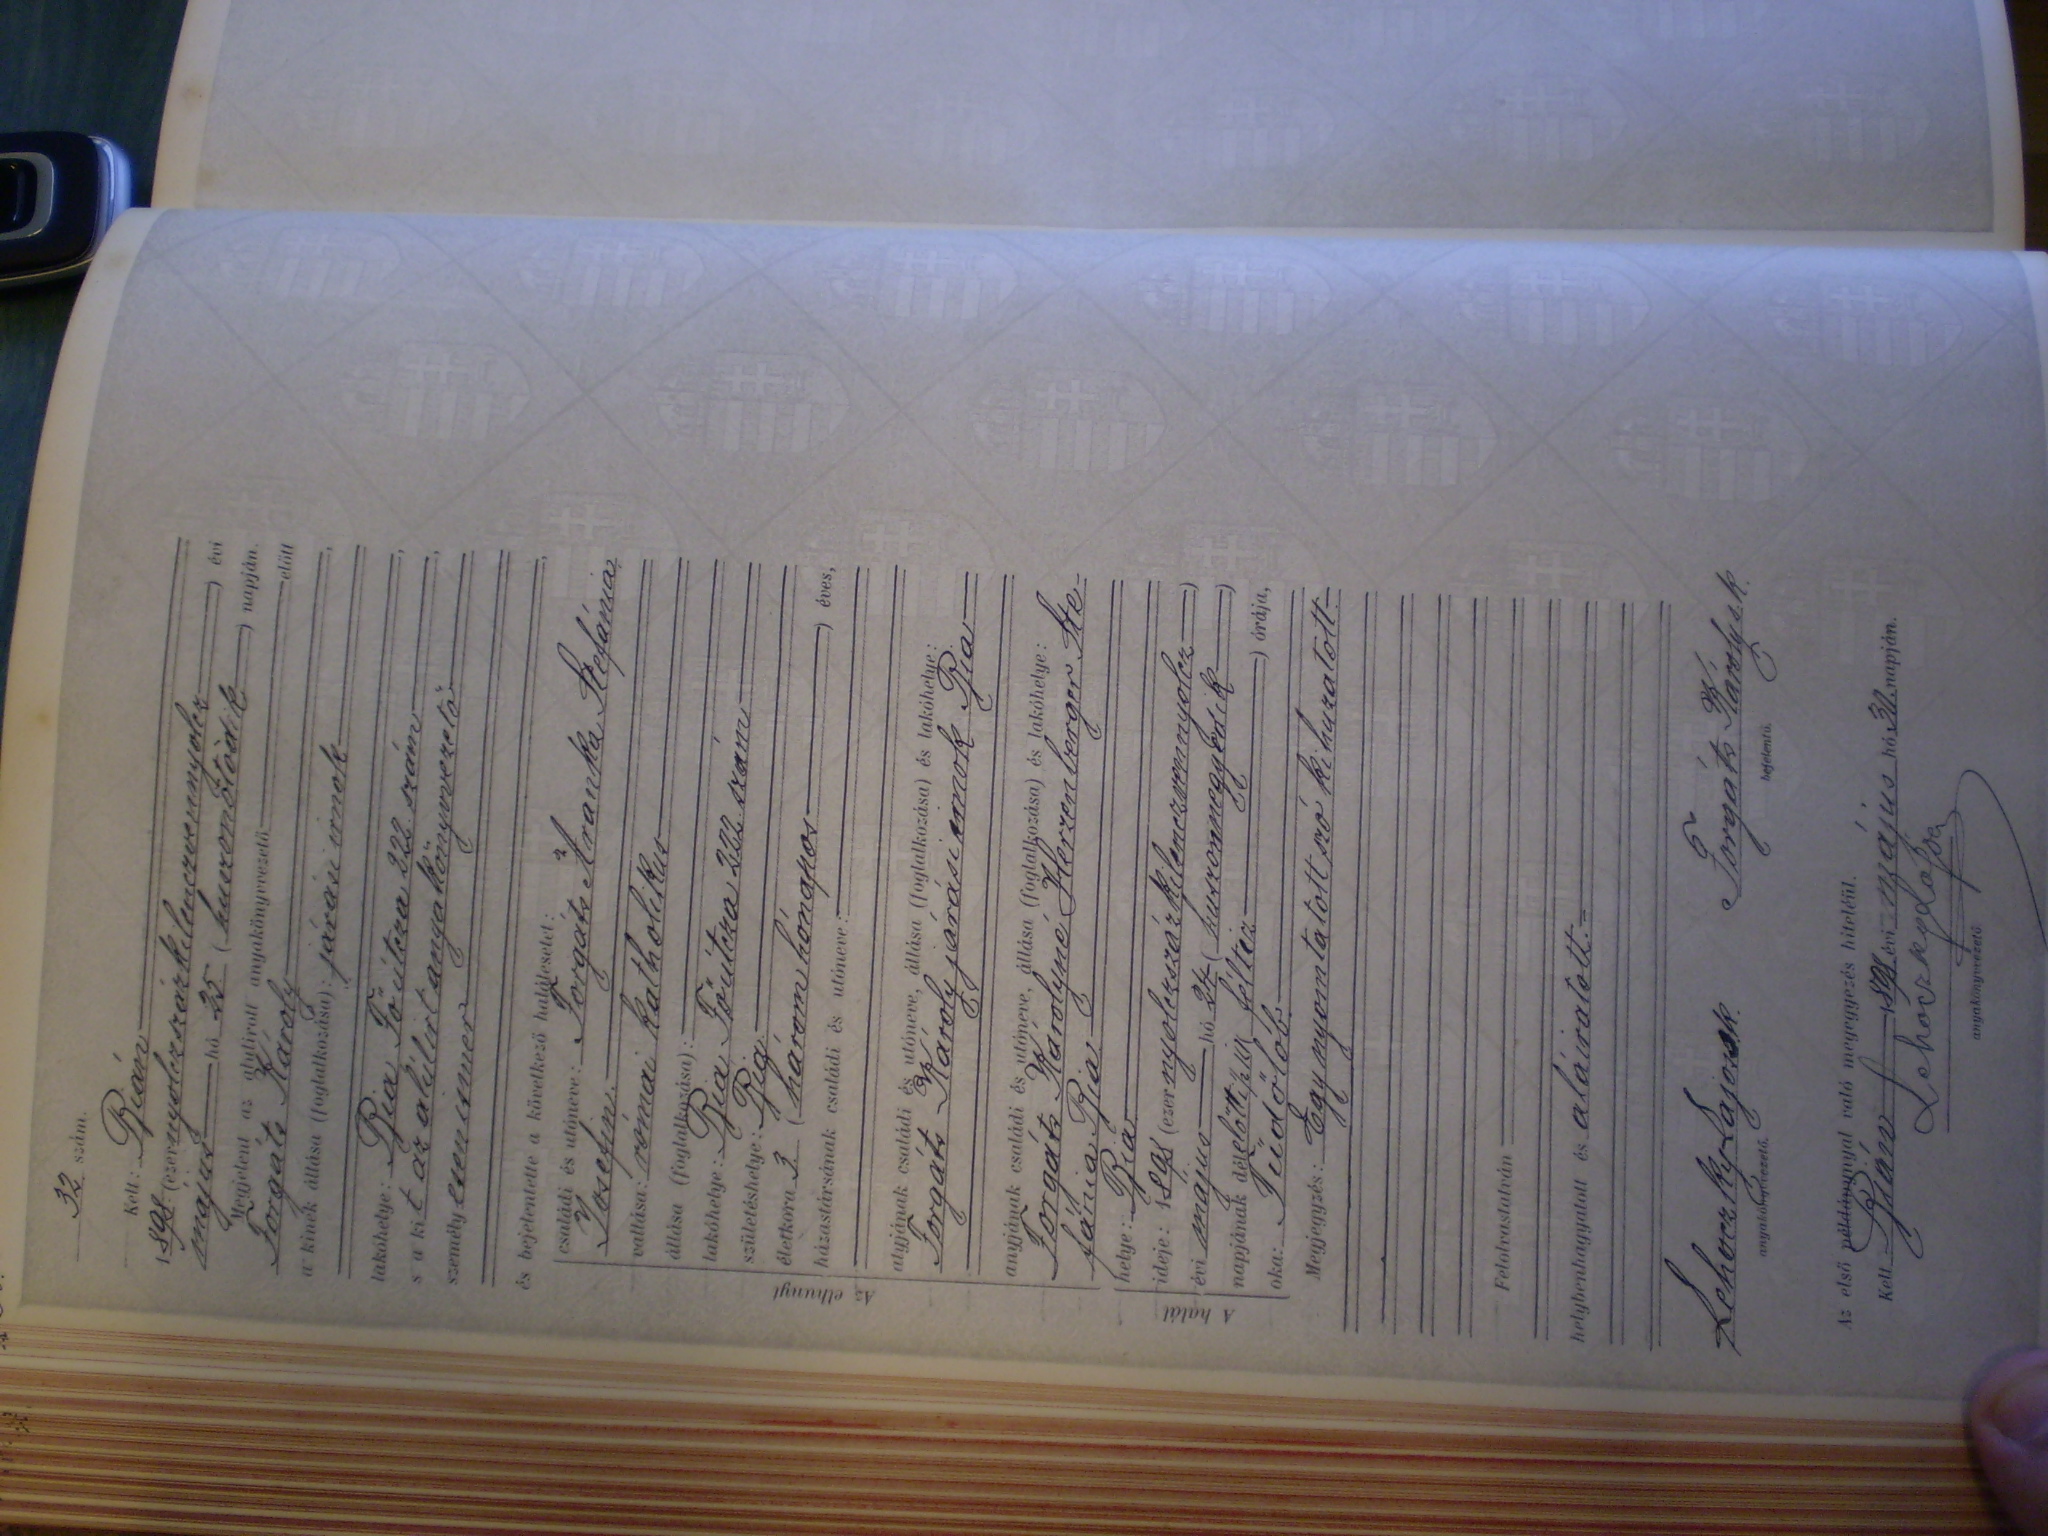 32 szám.
Kelt: Bián
1898 (ezernyolczszázkilenczvennyolcz) évi
május hó 25 (huszonötödik) napján.
Megjelent az alulirott anyakönyvvezető előtt
Forgáts Károly
a kinek állása (foglalkozása): járási irnok,
lakóhelye: Bia Főútcza 222. szám,
s a kit az alúlirt anyakönyvvezető,
személyesen ismer
,
és bejelentette a következő halálesetet:
családi és utóneve: Forgáts Aranka Stefánia
Josefin.
vallása: római katholikus
állása (foglalkozása):
lakóhelye: Bia Főútcza 222. szám
születéshelye: Bia
életkora 3 (három hónapos) éves,
házastársának családi és utóneve:
atyjának családi és utóneve, állása (foglalkozása) és lakóhelye:
Forgáts Károly járási irnok Bia
anyjának családi és utóneve, állása (foglalkozása) és lakóhelye:
Forgáts Károlyné Herzenberger Ste-
fánia Bia
Az elhunyt
helye: Bia
ideje: 1898 (ezernyolczszázkilenczvennyolcz)
évi május hó 24 (huszonnegyedik)
napjának délelőtti féltiz) órája,
oka: Tüdőlob
A halál
Megjegyzés: Egy nyomtatott szó kihuzatott.
Felolvastatván
helybenhagyatott és aláiratott.
Lehoczky Lajos sk. Forgáts Károly s.k.
anyakönyvvezető. bejelentő.
Az első példánnyal való megegyezés hiteléül.
Kelt Bián 1898 évi május hó 31. napján.
Lehoczky Lajos
anyakönyvvezető.